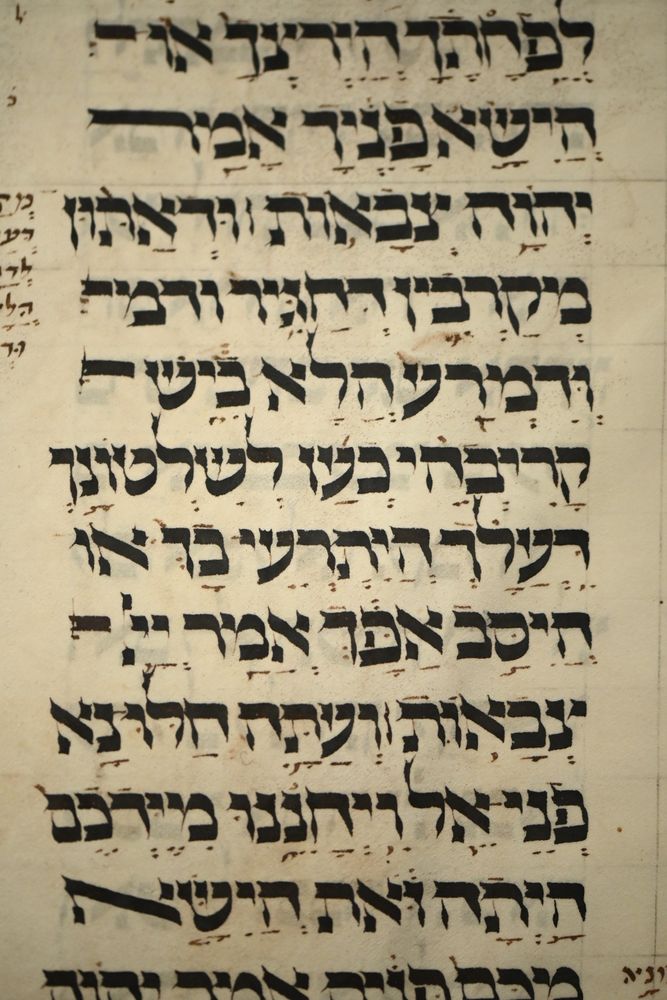 לפחתך הירצך או
הישא פניך אמר
יהוה צבאות ודאתון
מקרבין דחגיר ודמר
ודמרע הלא ביש
קריבהי כען לשלטונך
דעלך היתרעי בך או
היסב אפך אמר ייי
צבאות ועתה חלו נא
פני אל ויחננו מידכם
היתה זאת הישא
מכם פנים אמר יהוה